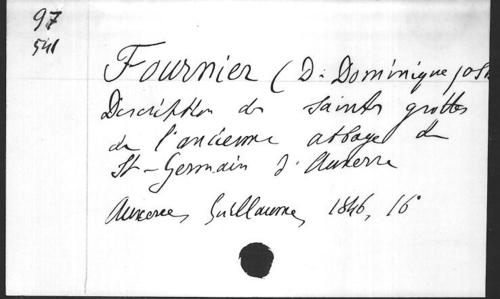 97
541
Fournier (D. Dominique Jos
Description des saintes grottes
de l'ancienne abbaye de
St-Germain d'Auxerre
Auxerre, Guillaume, 1846, 16°